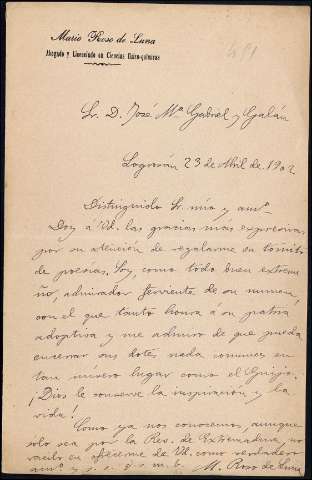 Mario Roso de Luna
Abogado y Licenciado en Ciencias físico-químicas
Sr. D. José Mª Gabriel y Galán
Logrosán 23 de Abril de 1902
Distinguido Sr. mío y amº
Doy á Vd. las gracias más expresivas
por su atención de regalarme su tomito
de poesías. Soy, como todo buen extreme
ño, admirador ferviente de su numen,
con el que tanto honra á su patria
adoptiva y me admiro de que pueda
encerrar sus dotes nada comunes en
tan mísero lugar como el Guijo.
¡Dios le conserve la inspiración y la
vida!
Como ya nos conocemos, aunque
solo sea por la Rev. de Extremadura, no
vacilo en ofrecerme de Vd. como verdadero
amº y s. s. q. s. m. b. M. Roso de Luna